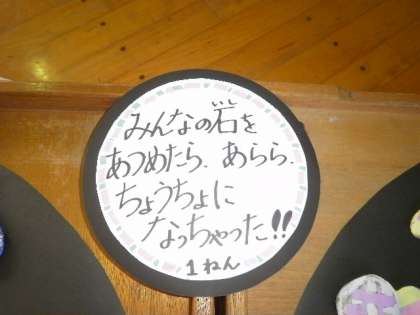 みんなの石を
いし
あつめたら、あらら、
ちょうちょに
なっちゃった!!
1ねん